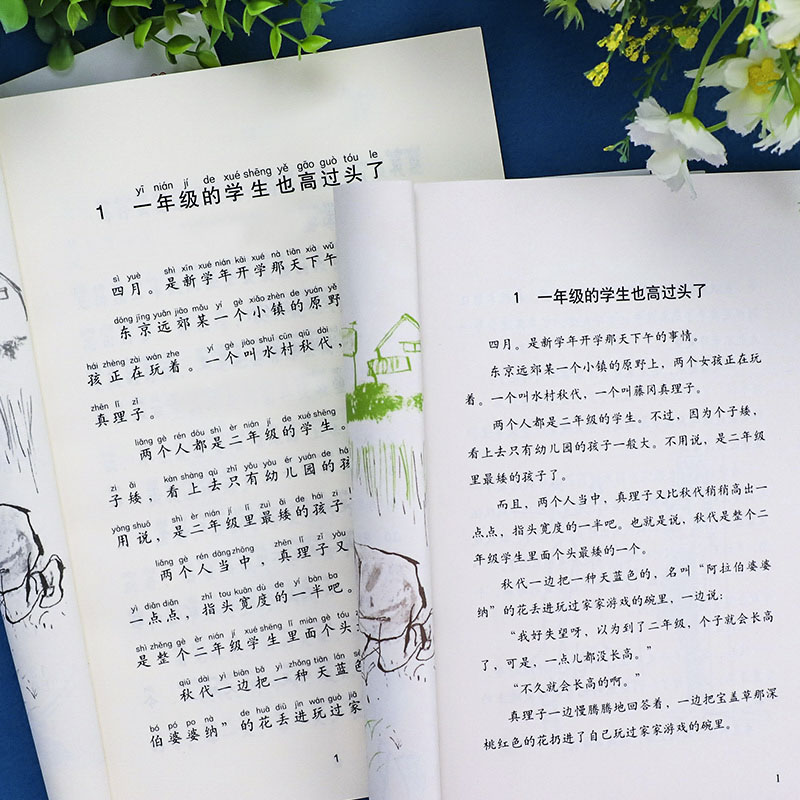 yī nián jí de xué shēng yě gāo guò tóu le
1 一年级的学生也高过头了
sì yuè shì xīn xué nián kāi xué nà tiān xià wǔ
四月。是新学年开学那天下午
dōng jīng yuǎn jiāo mǒu yí gè xiǎo zhèn de yuán yě
东京远郊某一个小镇的原野
hái zhèng zài wán zhe yí gè jiào shuǐ cūn qiū dài
孩正在玩着。一个叫水村秋代，
zhēn lǐ zǐ
真理子。
liǎng gè rén dōu shì èr nián jí de xué shēng
两个人都是二年级的学生。
zi ǎi kàn shàng qù zhǐ yǒu yòu ér yuán de hái
子矮，看上去只有幼儿园的孩
yòng shuō shì èr nián jí lǐ zuì ǎi de hái zi
用说，是二年级里最矮的孩子
liǎng gè rén dāng zhōng zhēn lǐ zǐ yòu
两个人当中，真理子又
yì diǎn diǎn zhǐ tou kuān dù de yí bàn ba
一点点，指头宽度的一半吧。
shì zhěng gè èr nián jí xué shēng lǐ miàn gè tóu
是整个二年级学生里面个头
qiū dài yì biān bǎ yì zhǒng tiān lán sè
秋代一边把一种天蓝色
bó pó po nà de huā diū jìn wán guò jiā
伯婆婆纳”的花丢进玩过家
1
1 一年级的学生也高过头了
四月。是新学年开学那天下午的事情。
东京远郊某一个小镇的原野上，两个女孩正在玩
着。一个叫水村秋代，一个叫藤冈真理子。
两个人都是二年级的学生。不过，因为个子矮，
看上去只有幼儿园的孩子一般大。不用说，是二年级
里最矮的孩子了。
而且，两个人当中，真理子又比秋代稍稍高出一
点点，指头宽度的一半吧。也就是说，秋代是整个二
年级学生里面个头最矮的一个。
秋代一边把一种天蓝色的，名叫“阿拉伯婆婆
纳”的花丢进玩过家家游戏的碗里，一边说：
“我好失望呀，以为到了二年级，个子就会长高
了，可是，一点儿都没长高。”
“不久就会长高的啊。”
真理子一边慢腾腾地回答着，一边把宝盖草那深
桃红色的花扔进了自己玩过家家游戏的碗里。
1